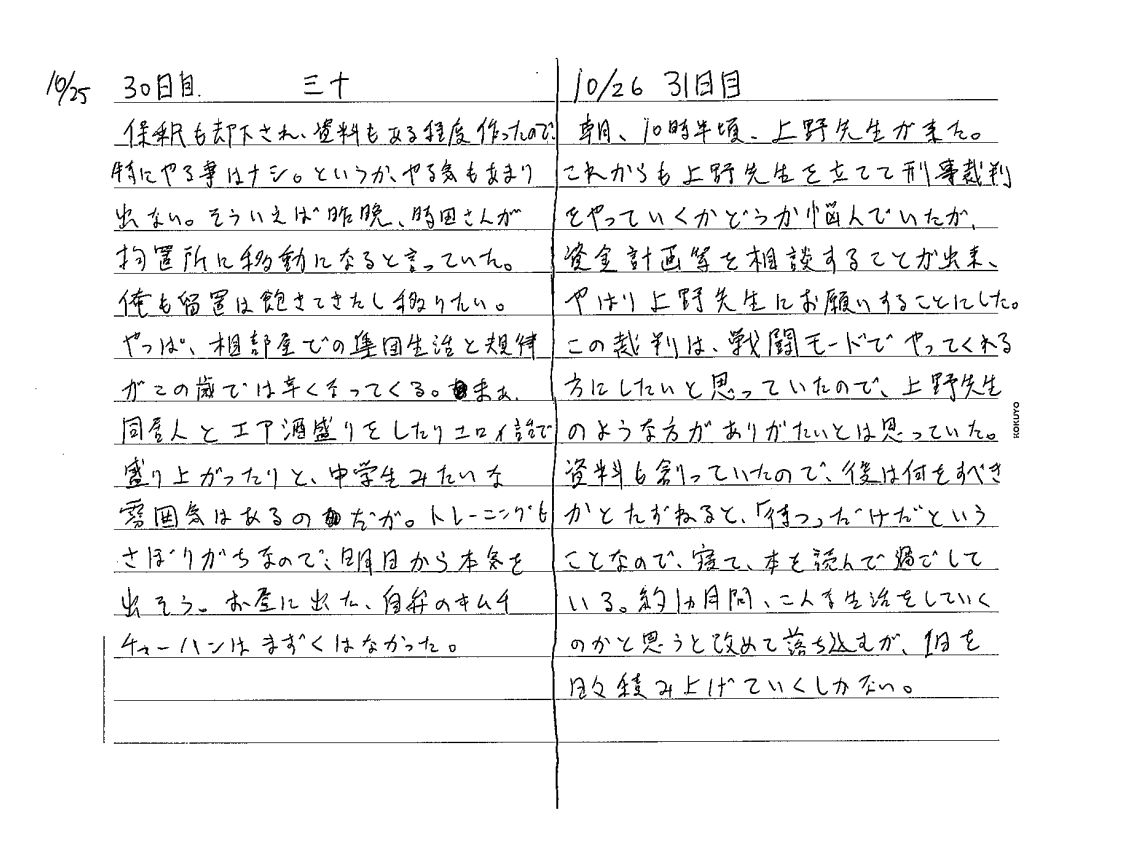 10/25 30日目. 三十
保釈も却下され、資料もある程度作ったので、
特にやる事はナシ。というか、やる気もあまり
出ない。そういえば昨晩、時田さんが
拘置所に移動になると言っていた。
俺も留置は飽きてきたし移りたい。
やっぱ、相部屋での集団生活と規律
がこの歳では辛くなってくる。まぁ、
同居人とエア酒盛りをしたりエロイ話で
盛り上がったりと、中学生みたいな
雰囲気はあるのだが。トレーニングも
さぼりがちなので、明日から本気を
出そう。お昼に出た、自弁のキムチ
チャーハンはまずくはなかった。
10/26 31日目
朝、10時半頃、上野先生が来た。
これからも上野先生を立てて刑事裁判
をやっていくかどうか悩んでいたが、
資金計画等を相談することが出来、
やはり上野先生にお願いすることにした。
この裁判は、戦闘モードでやってくれる
方にしたいと思っていたので、上野先生
のような方がありがたいとは思っていた。
資料も創っていたので、後は何をすべき
かとたずねると、「待つ」だけだという
ことなので、寝て、本を読んで過ごして
いる。約1カ月間、こんな生活をしていく
のかと思うと改めて落ち込むが、1日を
日々積み上げていくしかない。
KOKUYO